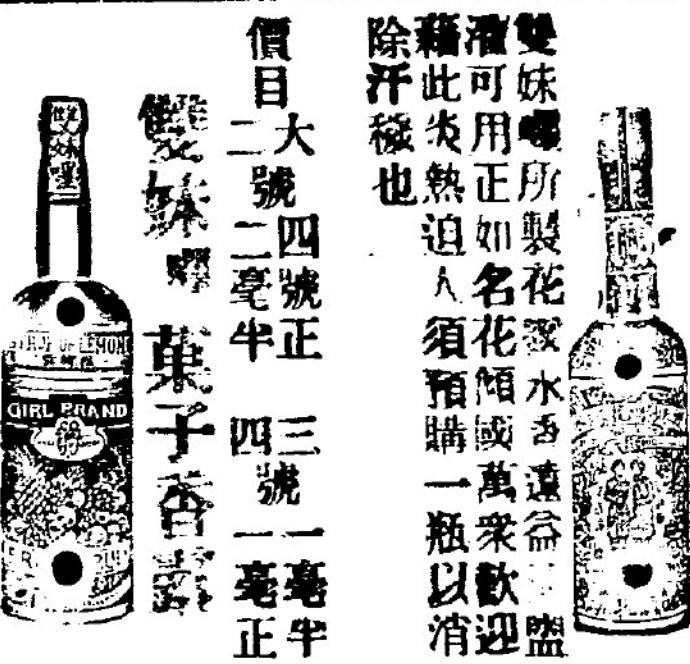 雙妹嚜所製花露水香遠益清盥
濯可用正如名花傾國萬衆歡迎
藉此炎熱迫人須預購一瓶以消
除汗穢也
價目
大二號
四號正
二毫半
三四號
一毫半
一毫正
雙妹嚜菓子香露
雙妹嚜
SYRUP OF LEMON
GIRL BRAND